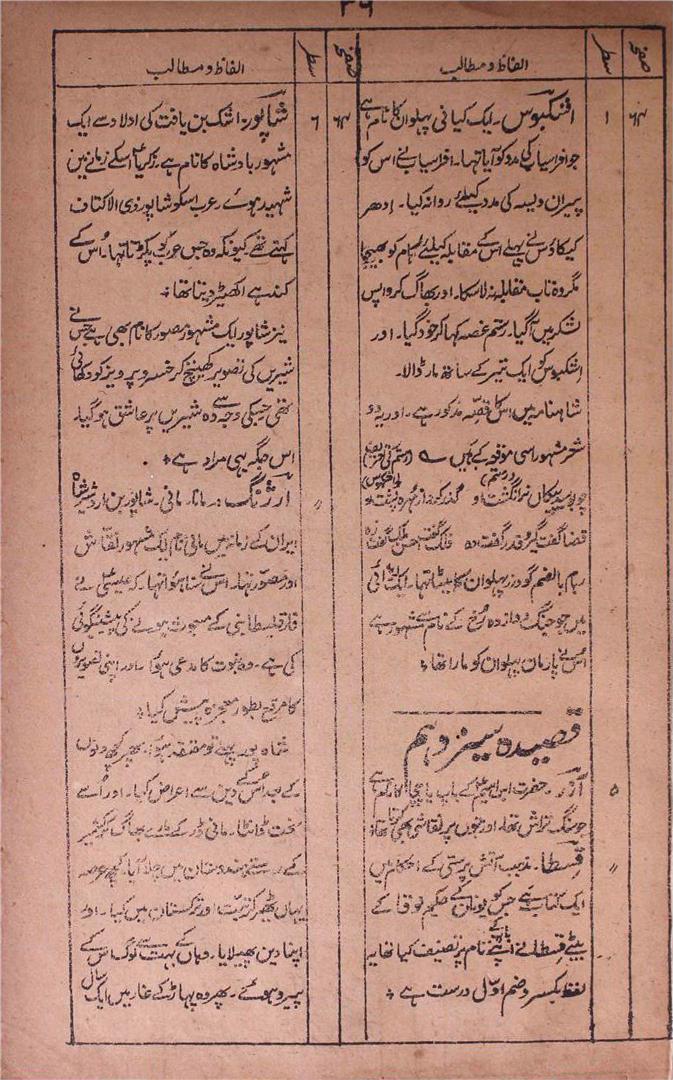 ۳۶
صفحہ سطر الفاظ و مطالب
۶۴ ۱ اشکبوس۔ ایک کیانی پہلوان کا نام ہے
جو افراسیاب کی مدد کو آیا تھا۔ افراسیاب نے اس کو
پیران ویسہ کی مدد کیلئے روانہ کیا۔ ادھر
کیکاؤس نے پہلے اس کے مقابلہ کیلئے رُہام کو بھیجا
مگر وہ تاب مقابلہ نہ لا سکا۔ اور بھاگ کر واپس
لشکر میں آگیا۔ رستم غصہ کھا کر خود گیا۔ اور
اشکبوس کو ایک تیر کے ساتھ مار ڈالا۔
شاہنامہ میں اس کا قصّہ مذکور ہے۔ اور یہ دو
شعر مشہور اسی موقعہ کے ہیں ؎
چو بوسید پیکاں سر انگشت او گذر کرد از مہرہ پشت او
قضا گفت گیر و قدر گفت دہ فلک گفت احسن ملک گفت زہ
رہام بالضم گودرز پہلوان کا بیٹا تھا۔ ایک لڑائی
میں جو جنگ دوازدہ رخ کے نام سے مشہور ہے
اس نے بارمان پہلوان کو مارا تھا ؞
قصیدہ سیزدہم
۵ آزر۔ حضرت ابراہیمؑ کے باپ یا چچا کا نام ہے
جو سنگ تراش تھا۔ اور بتوں پر نقاشی بھی کرتا تھا
〃 قسطا۔ مذہب آتش پرستی کے احکام میں
ایک کتاب ہے جس کو یونان کے حکیم لوقا کے
بیٹے قسطا نے اپنے نام پر تصنیف کیا تھا یہ
لفظ بکسر و ضم اوّل درست ہے ؞
صفحہ سطر الفاظ و مطالب
۶۴ ۶ شاپور۔ اشک بن یافت کی اولاد سے ایک
مشہور بادشاہ کا نام ہے۔ زکریاؑ اسکے زمانے میں
شہید ہوئے۔ عرب اسکو شاپور ذی الاکتاف
کہتے تھے کیونکہ وہ جس عرب کو پکڑتا تھا۔ اُس کے
کندھے اکھیڑ دیتا تھا ؞
نیز شاپور ایک مشہور مصور کا نام بھی ہے جس نے
شیریں کی تصویر کھینچ کر خسرو پرویز کو دکھائی
تھی جسکی وجہ سے وہ شیریں پر عاشق ہو گیا۔
اس جگہ یہی مراد ہے ؞
〃 ارژنگ:۔ مانا۔ مانی۔ شاپور بن اردشیر شاہ
ایران کے زمانہ میں مانی نام ایک مشہور نقّاش
اور مصور تھا۔ اس نے سنا ہوا تھا کہ عیسیٰؑ نے
فارقلیطا نبی کے مبعوث ہونے کی پیشنگوئی
کی ہے۔ وہ نبوت کا مدعی ہوا۔ اور اپنی تصویروں
کا مرقع بطور معجزہ پیش کیا ؞
شاہ پور پہلے تو معتقد ہوا۔ پھر کچھ دنوں
کے بعد اُس کے دین سے اعراض کیا۔ اور اُسے
سخت ڈانٹا۔ مانی ڈر کے مارے بھاگ کر کشمیر
کے رستے ہندوستان میں چلا آیا۔ کچھ عرصہ
یہاں ٹھیر کر تبّت اور ترکستان میں گیا۔ اور
اپنا دین پھیلایا۔ وہاں کے بہت سے لوگ اس کے
پیرو ہو گئے۔ پھر وہ پہاڑ کے غار میں ایک سال